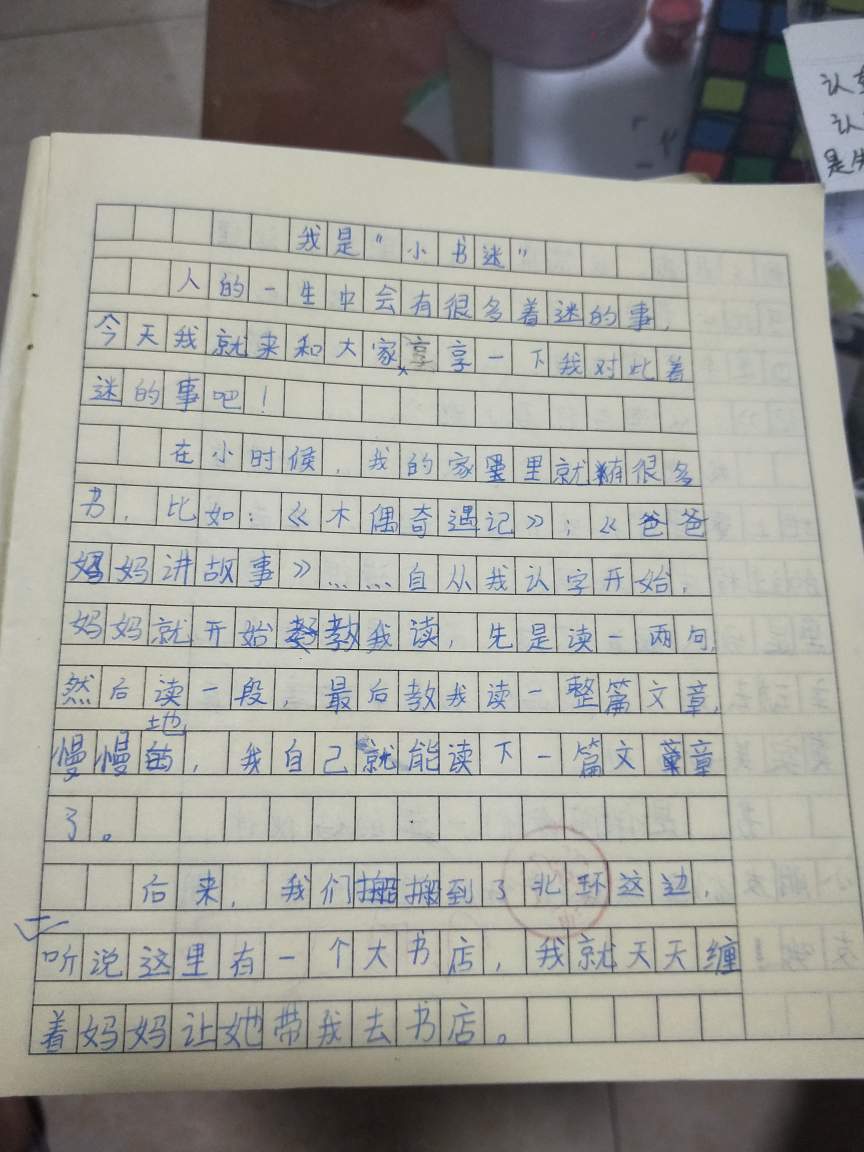 我是“小书迷”
人的一生中会有很多着迷的事，
今天我就来和大家享享一下我对比着
迷的事吧！
在小时候，我的家里就有很多
书，比如：《木偶奇遇记》；《爸爸
妈妈讲故事》……自从我认字开始，
妈妈就开始教我读，先是读一两句，
然后读一段，最后教我读一整篇文章，
慢慢地，我自己就能读下一篇文章
了。
后来，我们搬到了北环这边，
听说这里有一个大书店，我就天天缠
着妈妈让她带我去书店。
认
认
是